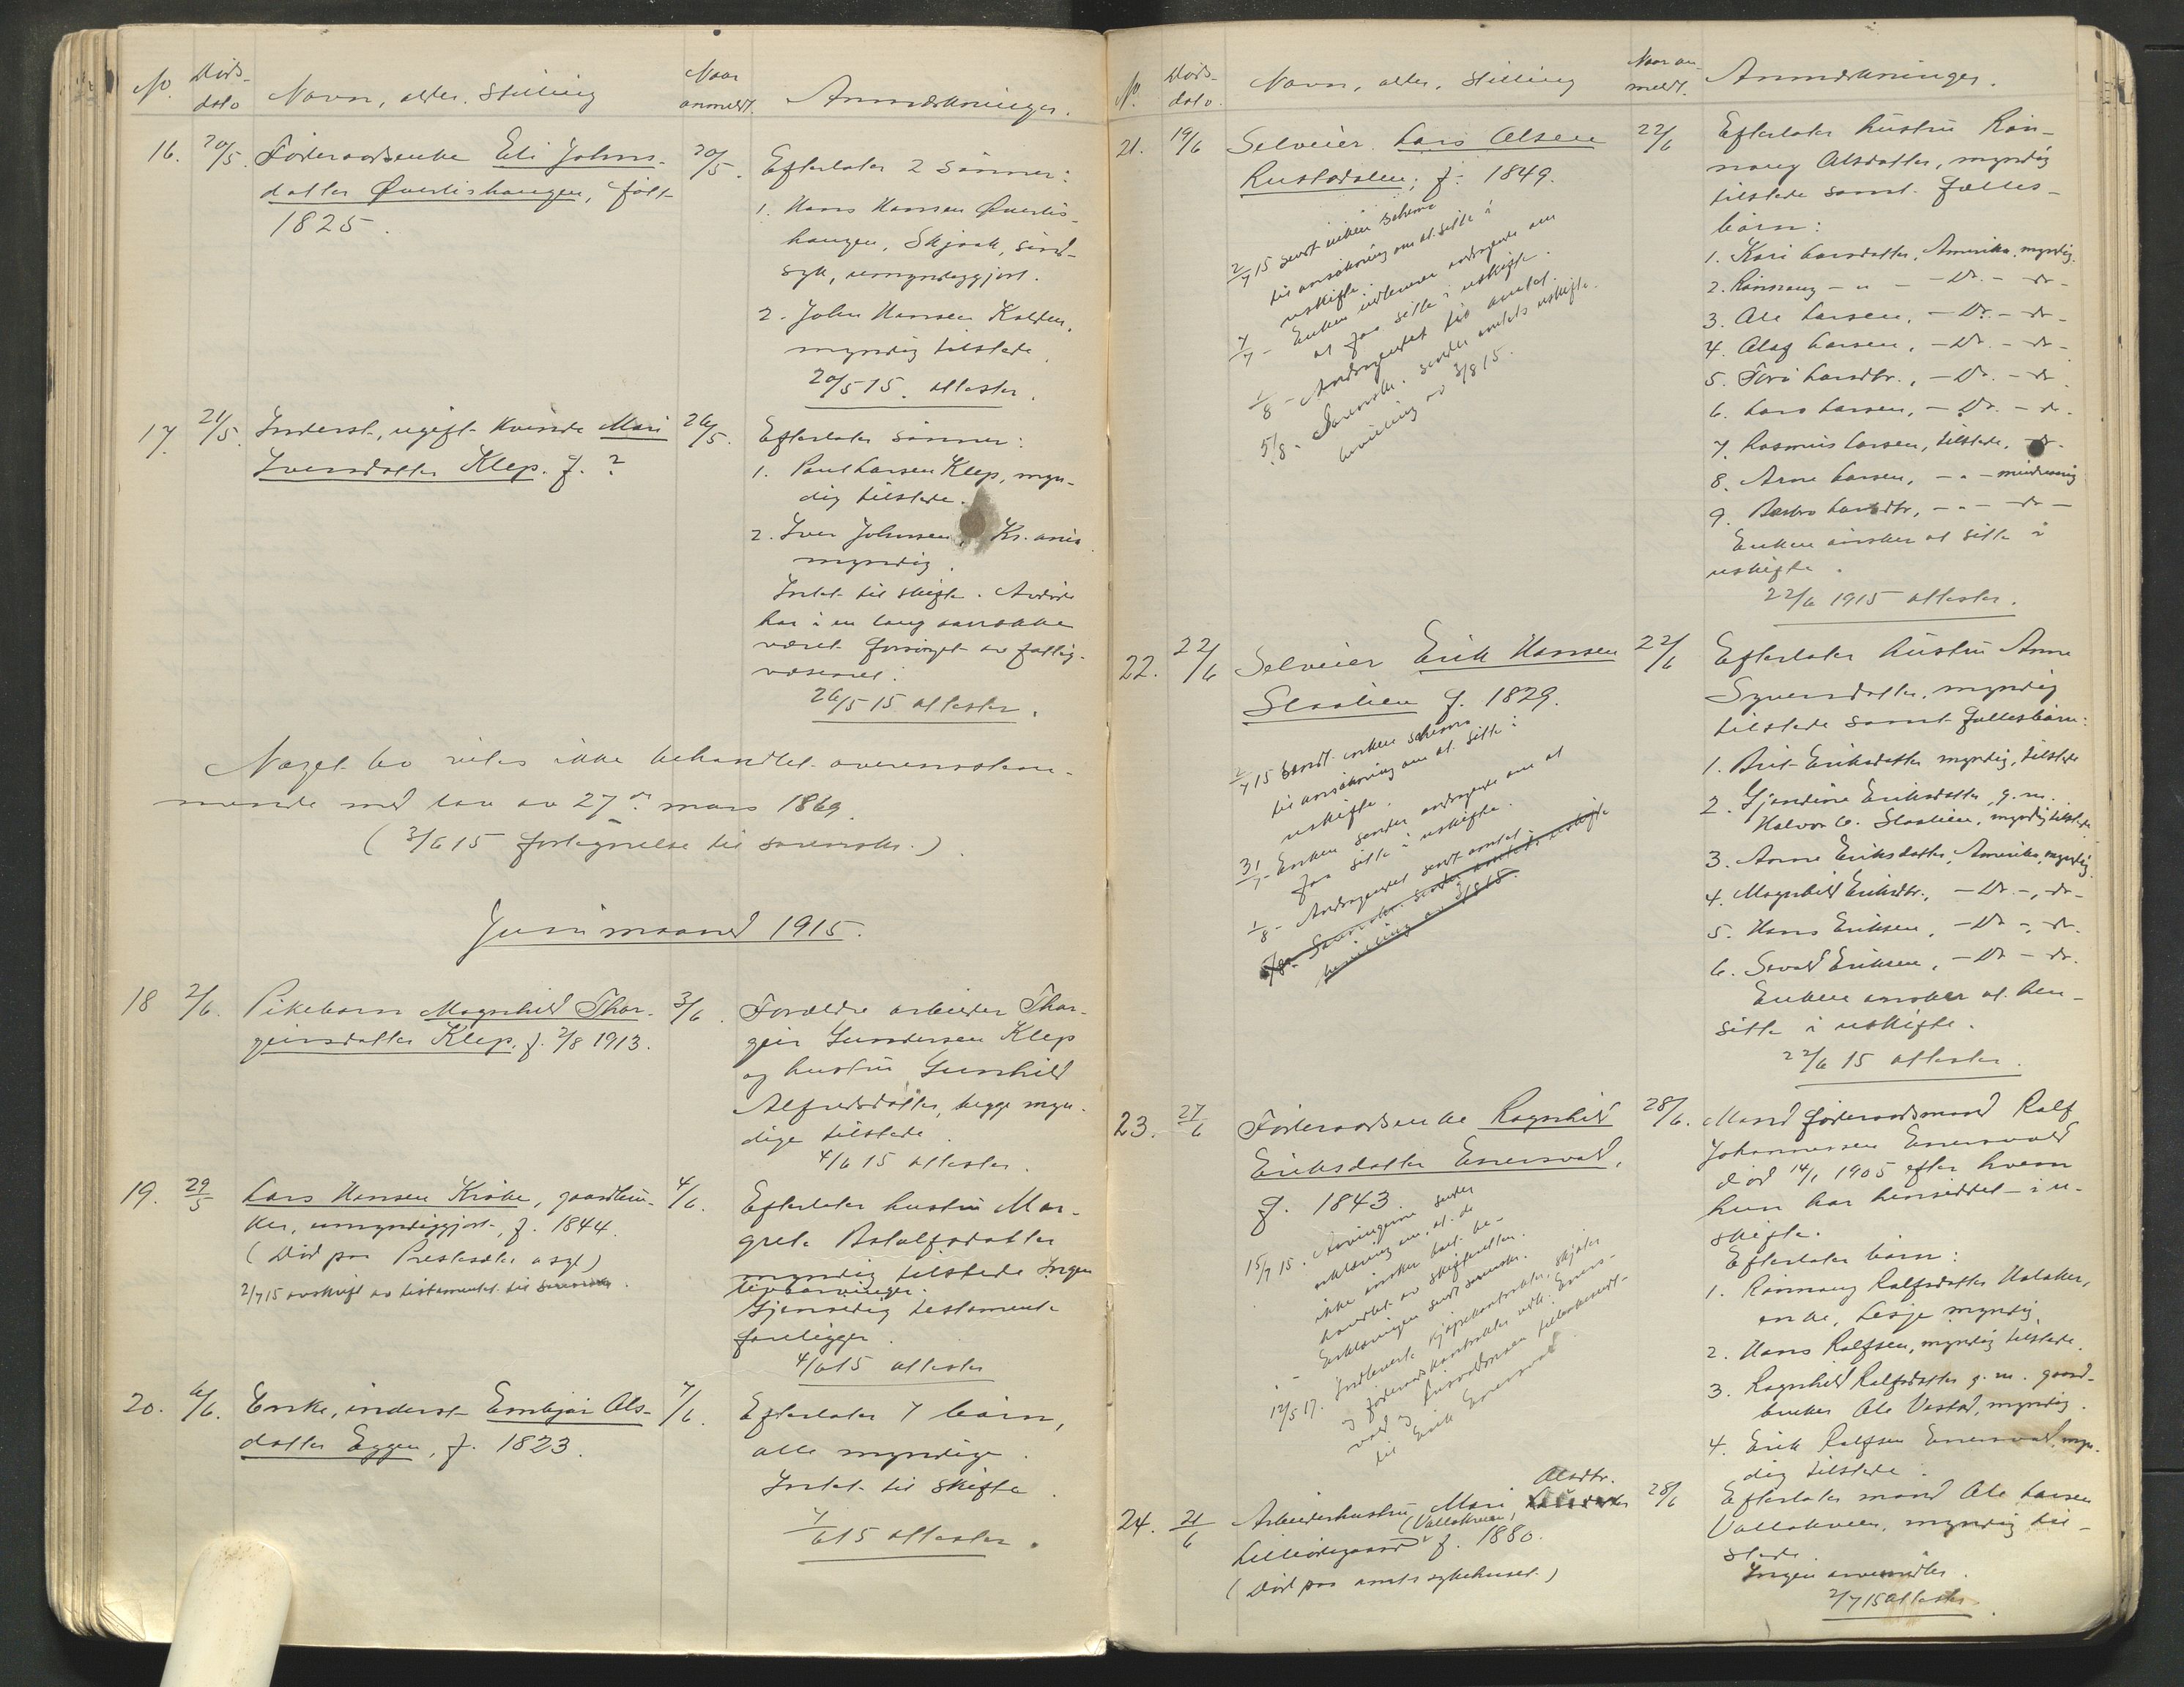 No. Døds-
dato Navn, alder, Stilling Naar
anmeldt. Anmærkninger.
16. 20/5. Føderaadsenke Eli Johns-
datter Øverlishaugen, født
1825.
20/5. Efterlater 2 sønner:
1. Hans Hansen Øverlis-
haugen, Skjaak, sind-
syk, umyndiggjort.
2. John Hansen Kolden,
myndig tilstede.
20/5 15. attester.
17. 21/5. Inderst, ugift kvinde Mari
Iversdatter Klep. f. ?
26/5. Efterlater sønner:
1. Paul Larsen Klep, myn-
dig tilstede.
2. Iver Johnsen, Kr.ania
myndig.
Intet til skifte. Avdøde
har i en lang aarrække
været forsørget av fattig-
væsenet.
26/5 15 attester.
Noget bo vites ikke behandlet overensstem-
mende med lov av 27de mars 1869.
(3/6 15 fortegnelse til sorenskr.).
Juni maaned 1915.
18 2/6. Pikebarn Magnhild Thor-
geirsdatter Klep, f. 2/8 1913.
3/6. Forældre arbeider Thor-
geir Gundersen Klep
og hustru Gunhild
Alfredsdatter, begge myn-
dige tilstede.
4/6 15 attester.
19. 29/5 Lars Hansen Kroken, gaardbru-
ker, umyndiggjort, f. 1844.
(Død paa Presteseter asyl)
2/7 15 avskrift av testamentet til sorenskr.
4/6. Efterlater hustru Mar-
grete Botolfsdatter
myndig tilstede Ingen
livsarvinger.
Gjensidig testamente
foreligger.
4/6 15 attester
20. 6/6. Enke, inderst Embjør Ols-
datter Eggen, f. 1823.
7/6. Efterlater 7 børn,
alle myndige.
Intet til skifte.
7/6 15 attester.
No. Døds-
dato. Navn, alder, Stilling Naar an-
meldt. Anmærkninger.
21. 19/6 Selveier Lars Olsen
Rustadalen; f. 1849.
2/7 15 sendt enken schema
til ansøkning om at sitte i
uskifte.
7/7 - Enken indleverer andragende om
at faa sitte i uskifte.
1/8 - Andragendet til amtet.
5/8 - Sorenskr. sender amtets uskifte-
bevilling av 3/8 15.
22/6 Efterlater hustru Røn-
naug Olsdatter, myndig
tilstede samt fælles-
børn:
1. Kari Larsdatter, Amerika, myndig.
2. Rønnaug - " - - Do. - do -
3. Ole Larsen, - Do. - do -
4. Olaf Larsen, - Do. - do -
5. Larsdtr., - Do. - do
6. Lars Larsen, - Do. - do -
7. Rasmus Larsen, tilstede, - do -
8. Arne Larsen, - " - mindreaarig
9. Barbro Larsdtr, - " - do -
Enken ønsker at sitte i
uskifte.
22/6 1915 attester.
22. 22/6 Selveier Erik Hansen
Slaalien f. 1829.
2/7 15 sendt enken schema
til ansøkning om at sitte i
uskifte.
31/7 - Enken sender andragende om at
faa sitte i uskifte.
1/8 - Andragendet sendt amtet.
5/8 - Sorenskr. sender amtets uskifte
bevilling av 3/8 15.
22/6 Efterlater hustru Anne
Syversdatter, myndig
tilstede samt fællesbørn:
1. Brit Eriksdatter myndig, tilstede
2. Gjendine Eriksdatter, g. m.
Halvor C. Slaalien, myndig tilstede
3. Anne Eriksdatter, Amerika, myndig.
4. Magnhild Eriksdtr., - Do -, do -
5. Hans Eriksen, - Do -, do.
6. Sevald Eriksen, - Do - do.
Enken ønsker at hen-
sitte i uskifte.
22/6 15 attester.
23. 27/6 Føderaadsenke Ragnhild
Eriksdatter Enersvold,
f. 1843.
15/7 15. Arvingerne sender
erklæring om, at de
ikke ønsker boet be-
handlet av skifteretten.
" - Erklæringen sendt sorenskr.
12/5 17. Indleverte kjøpekontrakter, skjøter
og føderaadskontrakter vedk. Eners-
vold og tilbakesendt
til Erik Enersvold
28/6. Mand føderaadsmand Rolf
Johannessen Enersvold
død 14/1 1905 efter hvem
hun har hensiddet i u-
skifte.
Efterlater børn:
1. Rønnaug Rolfsdatter Holaker,
enke, Lesje myndig.
2. Hans Rolfsen, myndig tilstede.
3. Ragnhild Rolfsdatter g. m. gaard-
bruker Ole Vestad, myndig.
4. Erik Rolfsen Enersvold, myn-
dig tilstede.
24. 21/6 Arbeiderhustru Mari Olsdtr.
(Vollakveen,
Lilleødegaard f. 1880.
(Død paa amtssykehuset)
28/6 Efterlater mand Ole Larsen
Vollakveen, myndig til-
stede.
Ingen umyndige.
2/7 15 attester.